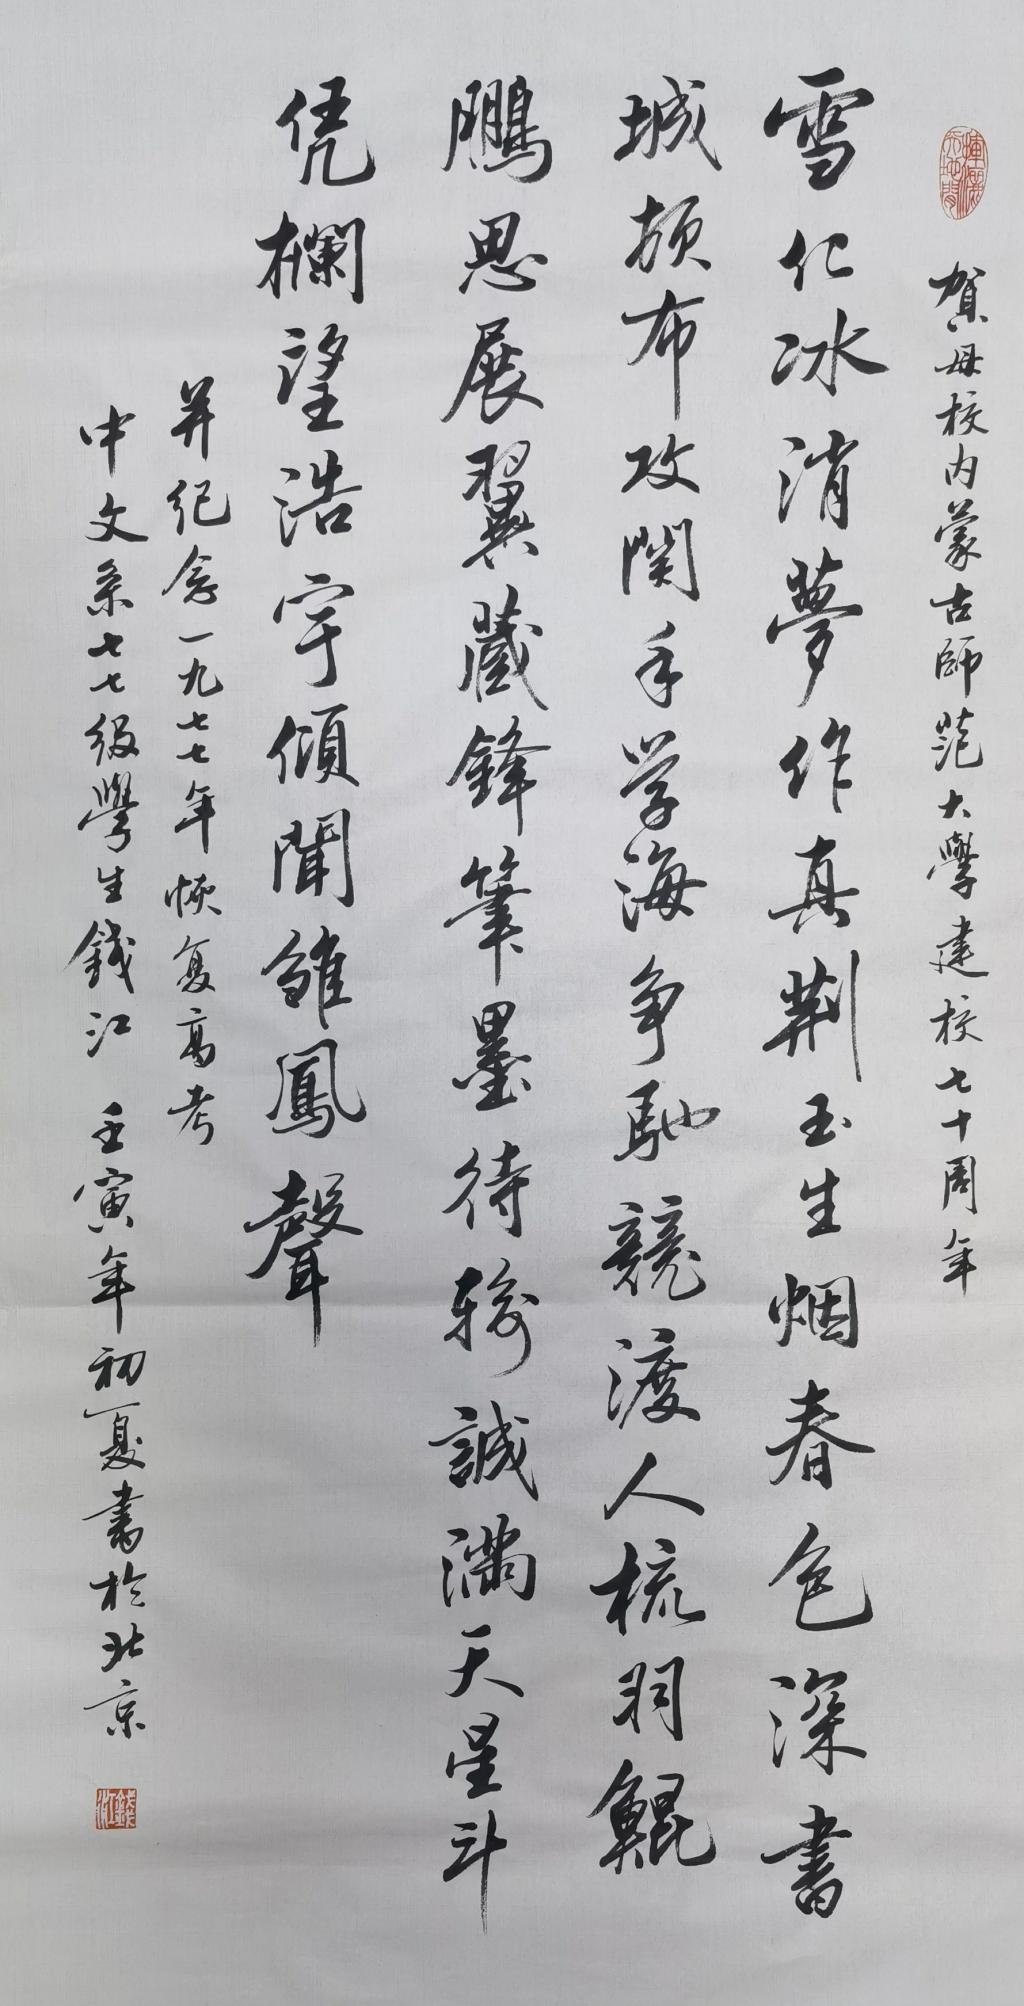 賀母校内蒙古師范大學建校七十周年
雪化冰消夢作真荆玉生烟春色深書
城頻布攻関手学海争馳競渡人梳羽鯤
鵬思展翼藏鋒筆墨待輸誠满天星斗
凭欄望浩宇傾聞雏鳳聲
并纪念一九七七年恢复高考
中文系七七级學生錢江 壬寅年初夏書於北京
錢江